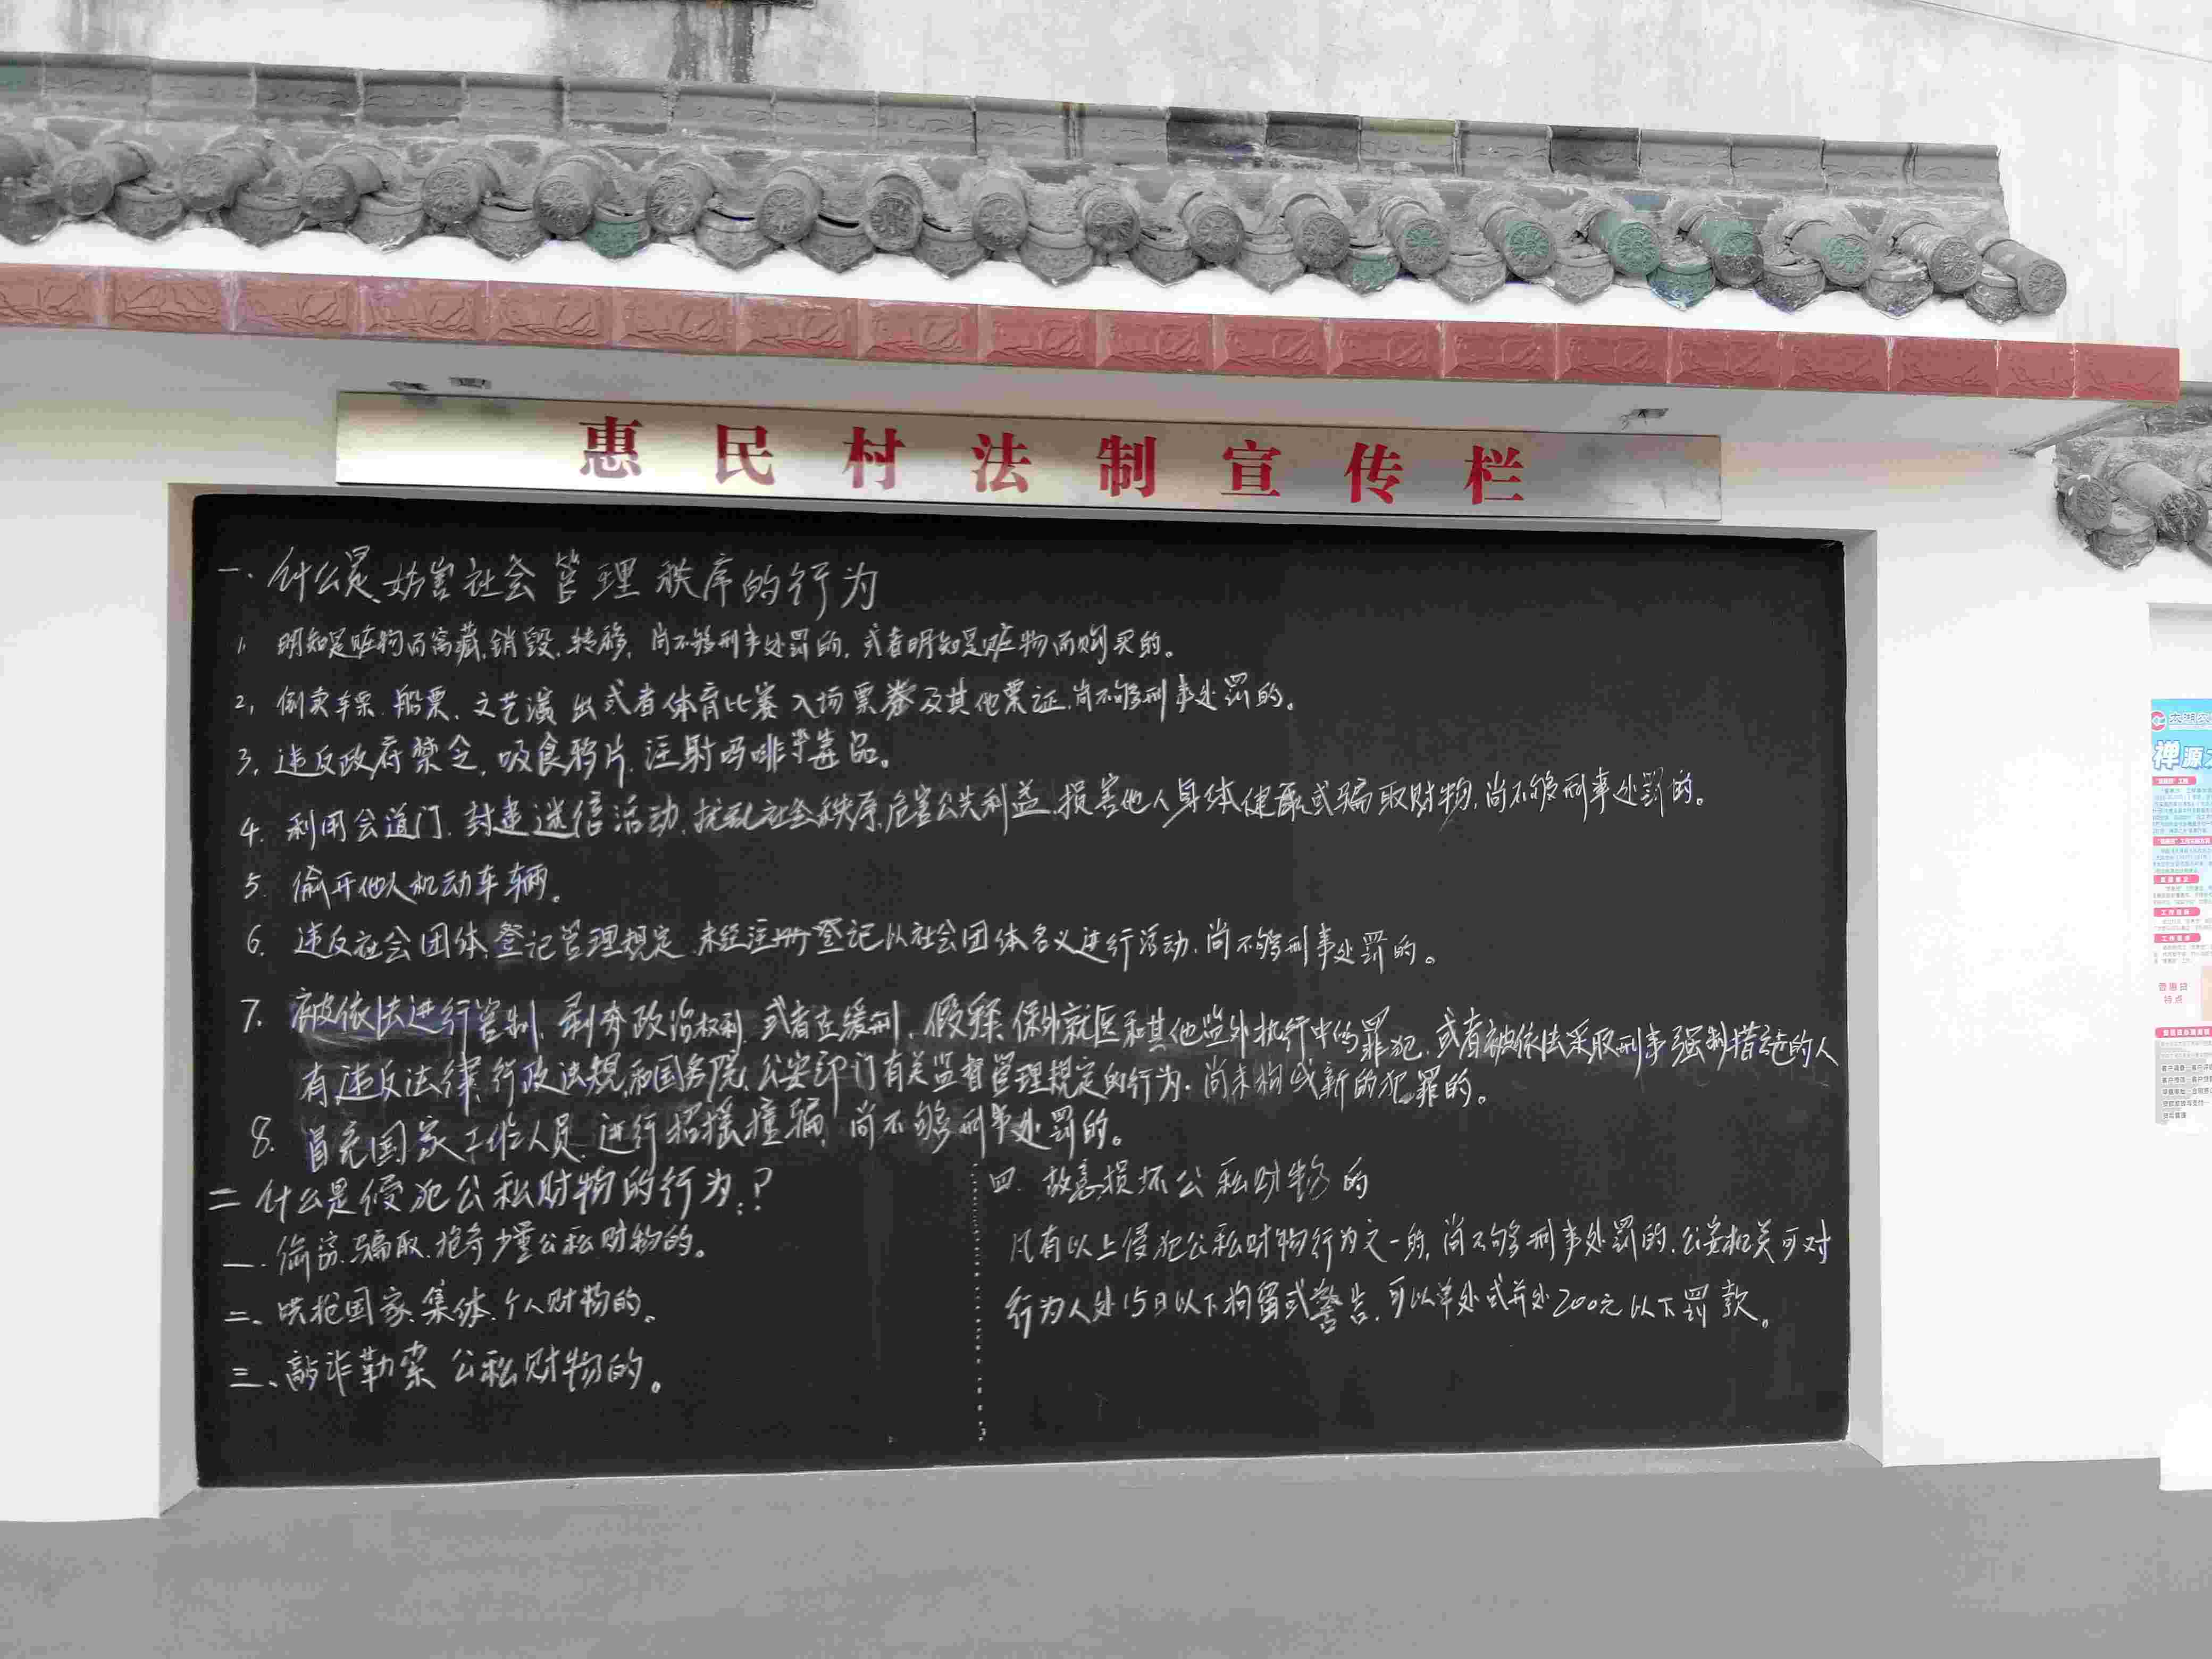 惠民村法制宣传栏
一.什么是妨害社会管理秩序的行为
1. 明知是赃物而窝藏.销毁.转移,尚不够刑事处罚的,或者明知是赃物而购买的。
2, 倒卖车票.船票.文艺演出或者体育比赛入场票券及其他票证,尚不够刑事处罚的。
3, 违反政府禁令,吸食鸦片.注射吗啡等毒品。
4. 利用会道门.封建迷信活动.扰乱社会秩序,危害公共利益.损害他人身体健康或骗取财物,尚不够刑事处罚的。
5. 偷开他人机动车辆。
6. 违反社会团体登记管理规定.未经注册登记以社会团体名义进行活动.尚不够刑事处罚的。
7. 被依法进行管制.剥夺政治权利.或者在缓刑.假释.保外就医和其他监外执行中的罪犯.或者被依法采取刑事强制措施的人
有违反法律.行政法规和国务院.公安部门有关监督管理规定的行为.尚未构成新的犯罪的。
8. 冒充国家工作人员.进行招摇撞骗,尚不够刑事处罚的。
二 什么是侵犯公私财物的行为:?
一.偷窃.骗取.抢夺少量公私财物的。
二、哄抢国家.集体.个人财物的。
三、敲诈勒索公私财物的。
四.故意损坏公私财物的
凡有以上侵犯公私财物行为之一的,尚不够刑事处罚的.公安机关可对
行为人处15日以下拘留或警告.可以单处或并处200元以下罚款。
禅源
特点